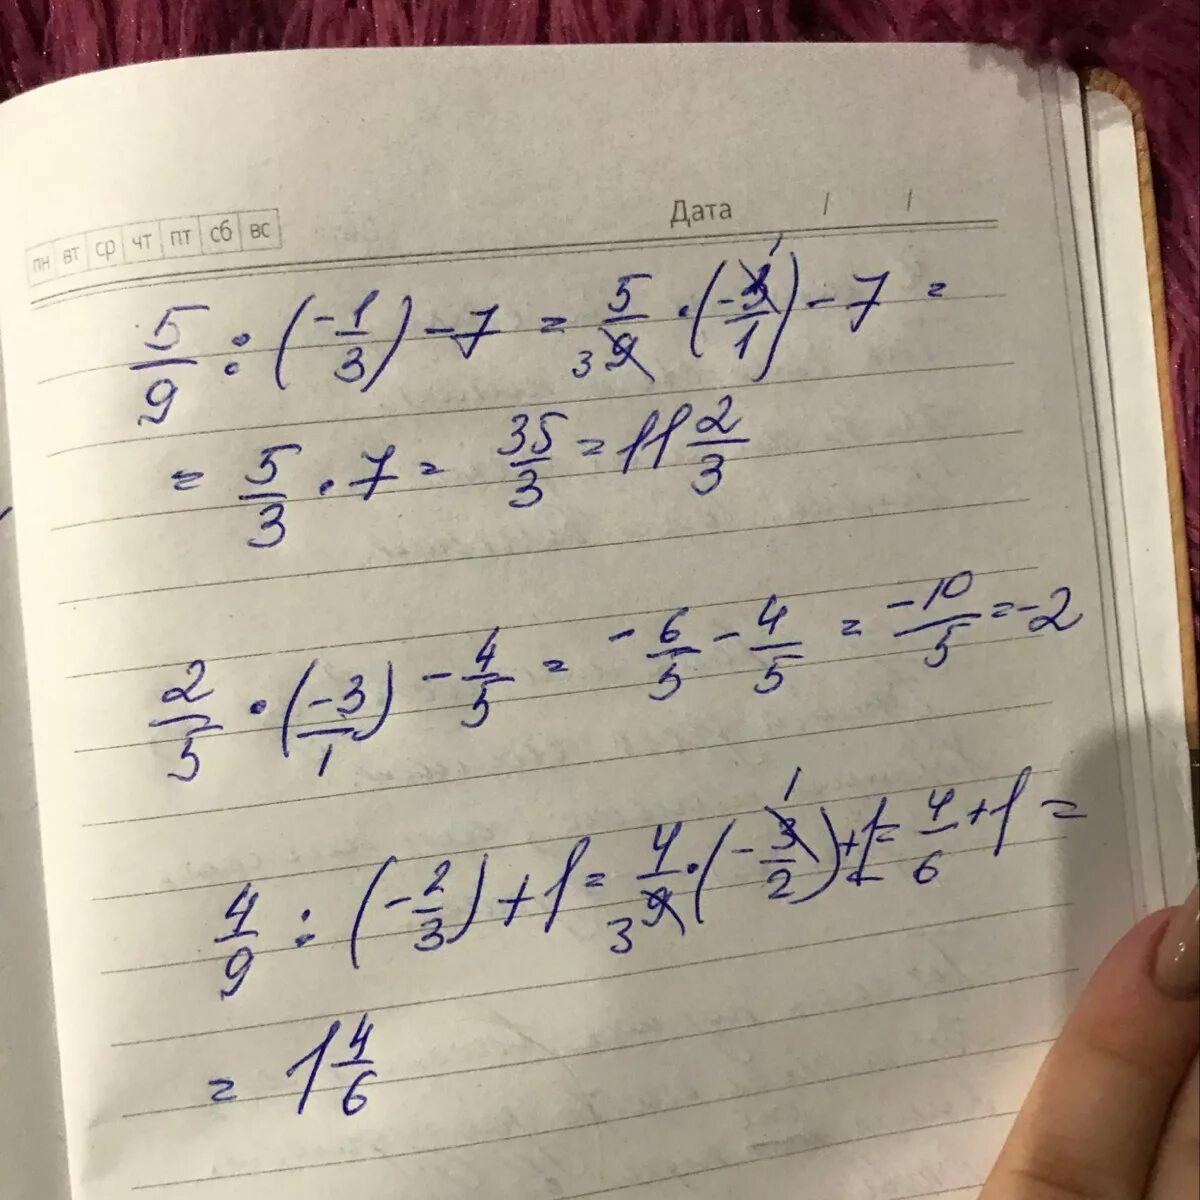 Дата / /
пн вт ср чт пт сб вс
5/9 : (-1/3) - 7 = 5/9 3 · (-3/1) 1 - 7 =
= 5/3 · 7 = 35/3 = 11 2/3
2/5 · (-3/1) - 4/5 = - 6/5 - 4/5 = -10/5 = -2
4/9 : (-2/3) + 1 = 4/9 3 · (-3/2) 1 + 1 = 4/6 + 1 =
= 1 4/6